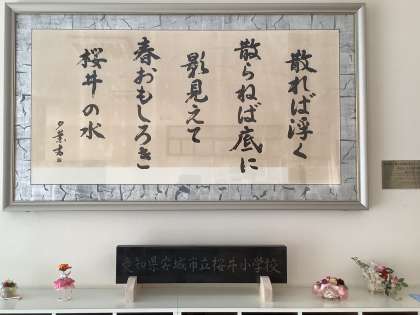 散れば浮く
散らねば底に
影見えて
春おもしろき
桜井の水
愛知県安城市立桜井小学校